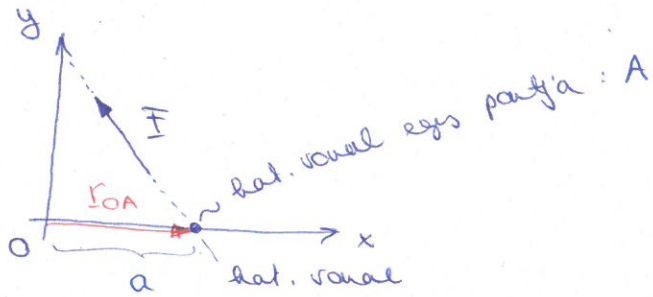 y
F
hat. vonal egyis pontja : A
r_OA
O
x
a
hat. vonal